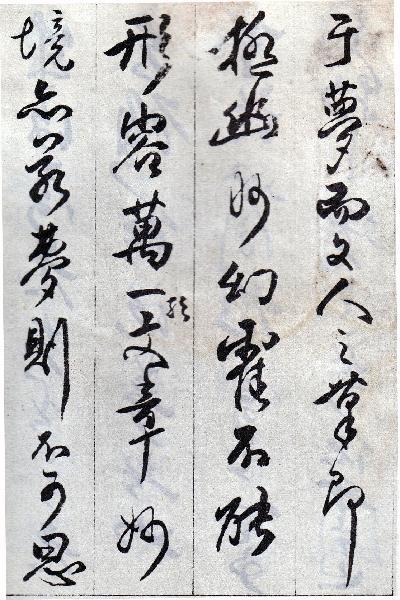 于夢而文人之筆即
極幽眇幻霍不能
形容萬一文章妙
境亦若夢則不可思